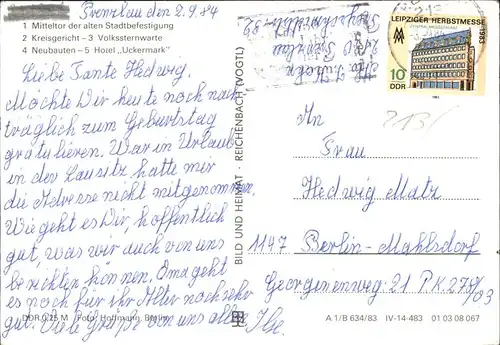 Prenzlau den 2.9.84
1 Mitteltor der alten Stadtbefestigung
2 Kreisgericht – 3 Volkssternwarte
4 Neubauten – 5 Hotel „Uckermark"
Liebe Tante Hedwig,
Möchte Dir heute noch nach
träglich zum Geburtstag
gratulieren. War in Urlaub
in der Lausitz hatte mir
die Adresse nicht mitgenommen.
Wie geht es Dir, hoffentlich
gut, was wir auch von uns
berichten können. Oma geht
es noch für ihr Alter noch sehr
gut. Viele Grüße von uns allen
Ilse.
DDR 0,25 M Foto: Hoffmann, Berlin
BILD UND HEIMAT · REICHENBACH (VOGTL)
213 Prenzlau
LEIPZIGER HERBSTMESSE
1983
10
DDR
213/
An
Frau
Hedwig Matz
1147 Berlin-Mahlsdorf
Georginenweg 21 PK 278/03
A 1/B 634/83 IV-14-483 01 03 08 067